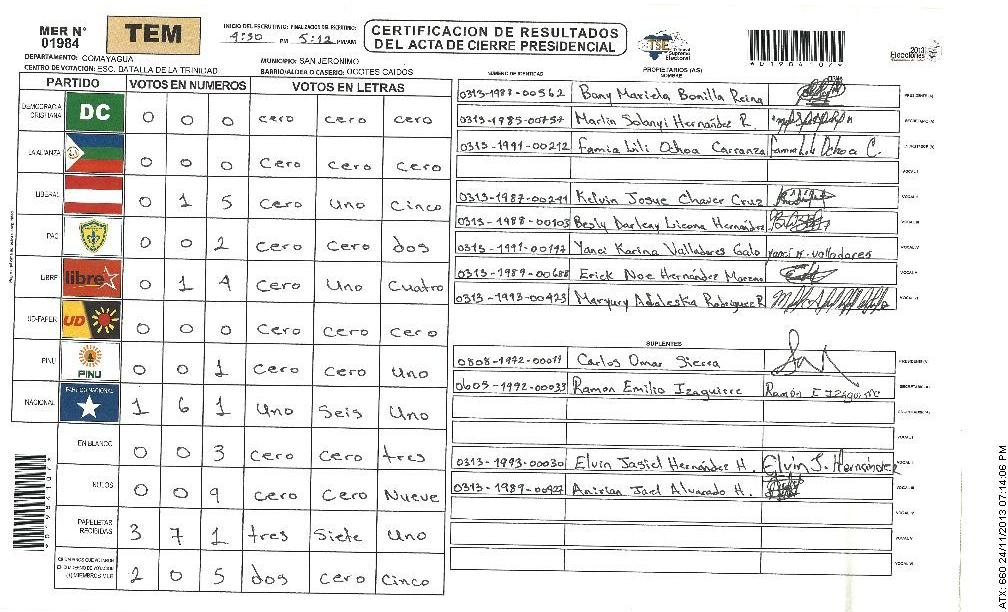 MER N° 01984
TEM
INICIO DEL ESCRUTINIO: FINALIZACION DEL ESCRUTINIO:
4:30 PM 5:12 PM/AM
CERTIFICACION DE RESULTADOS
DEL ACTA DE CIERRE PRESIDENCIAL
TSE Tribunal Supremo Electoral
2013 Elecciones
DEPARTAMENTO: COMAYAGUA
MUNICIPIO: SAN JERONIMO
CENTRO DE VOTACION: ESC. BATALLA DE LA TRINIDAD
BARRIO/ALDEA O CASERIO: OCOTES CAIDOS
PARTIDO VOTOS EN NUMEROS VOTOS EN LETRAS
DEMOCRACIA CRISTIANA DC 0 0 0 cero cero cero
LA ALIANZA 0 0 0 Cero Cero Cero
LIBERAL 0 1 5 Cero Uno Cinco
PAC 0 0 2 Cero Cero dos
LIBRE libre 0 1 4 Cero Uno Cuatro
UD-FAPER UD 0 0 0 Cero Cero Cero
PINU PINU 0 0 1 Cero Cero Uno
NACIONAL PARTIDO NACIONAL 1 6 1 Uno Seis Uno
EN BLANCO 0 0 3 Cero Cero tres
NULOS 0 0 9 Cero Cero Nueve
PAPELETAS RECIBIDAS 3 7 1 tres Siete Uno
2 0 5 dos Cero Cinco
NUMERO DE IDENTIDAD PROPIETARIOS (AS) NOMBRE
0313-1987-00562 Bany Mariela Bonilla Reina PRESIDENTE(A)
0313-1985-00757 Marlin Solanyi Hernández R. SECRETARIO(A)
0313-1991-00212 Famia Lili Ochoa Carranza Famia Lili Ochoa C.
VOCAL I
0313-1987-00241 Kelvin Josue Chavez Cruz VOCAL II
0313-1988-00103 Besly Darleny Licona Hernández VOCAL III
0313-1991-00197 Yanci Karina Valladares Galo Yanci K. Valladares VOCAL IV
0313-1989-00688 Erick Noe Hernández Moreno VOCAL V
0313-1993-00423 Maryury Adaleska Rodriguez R VOCAL VI
SUPLENTES
0808-1972-00011 Carlos Omar Sierra PRESIDENTE(A)
0605-1992-00033 Ramon Emilio Izaguirre Ramón E Izaguirre SECRETARIO(A)
VOCAL I
0313-1993-00030 Elvin Jasiel Hernández H. Elvin J. Hernández VOCAL II
0313-1989-00427 Jael Alvarado H. VOCAL III
VOCAL IV
VOCAL V
VOCAL VI
ATX: 660 24/11/2013 07:14:06 PM